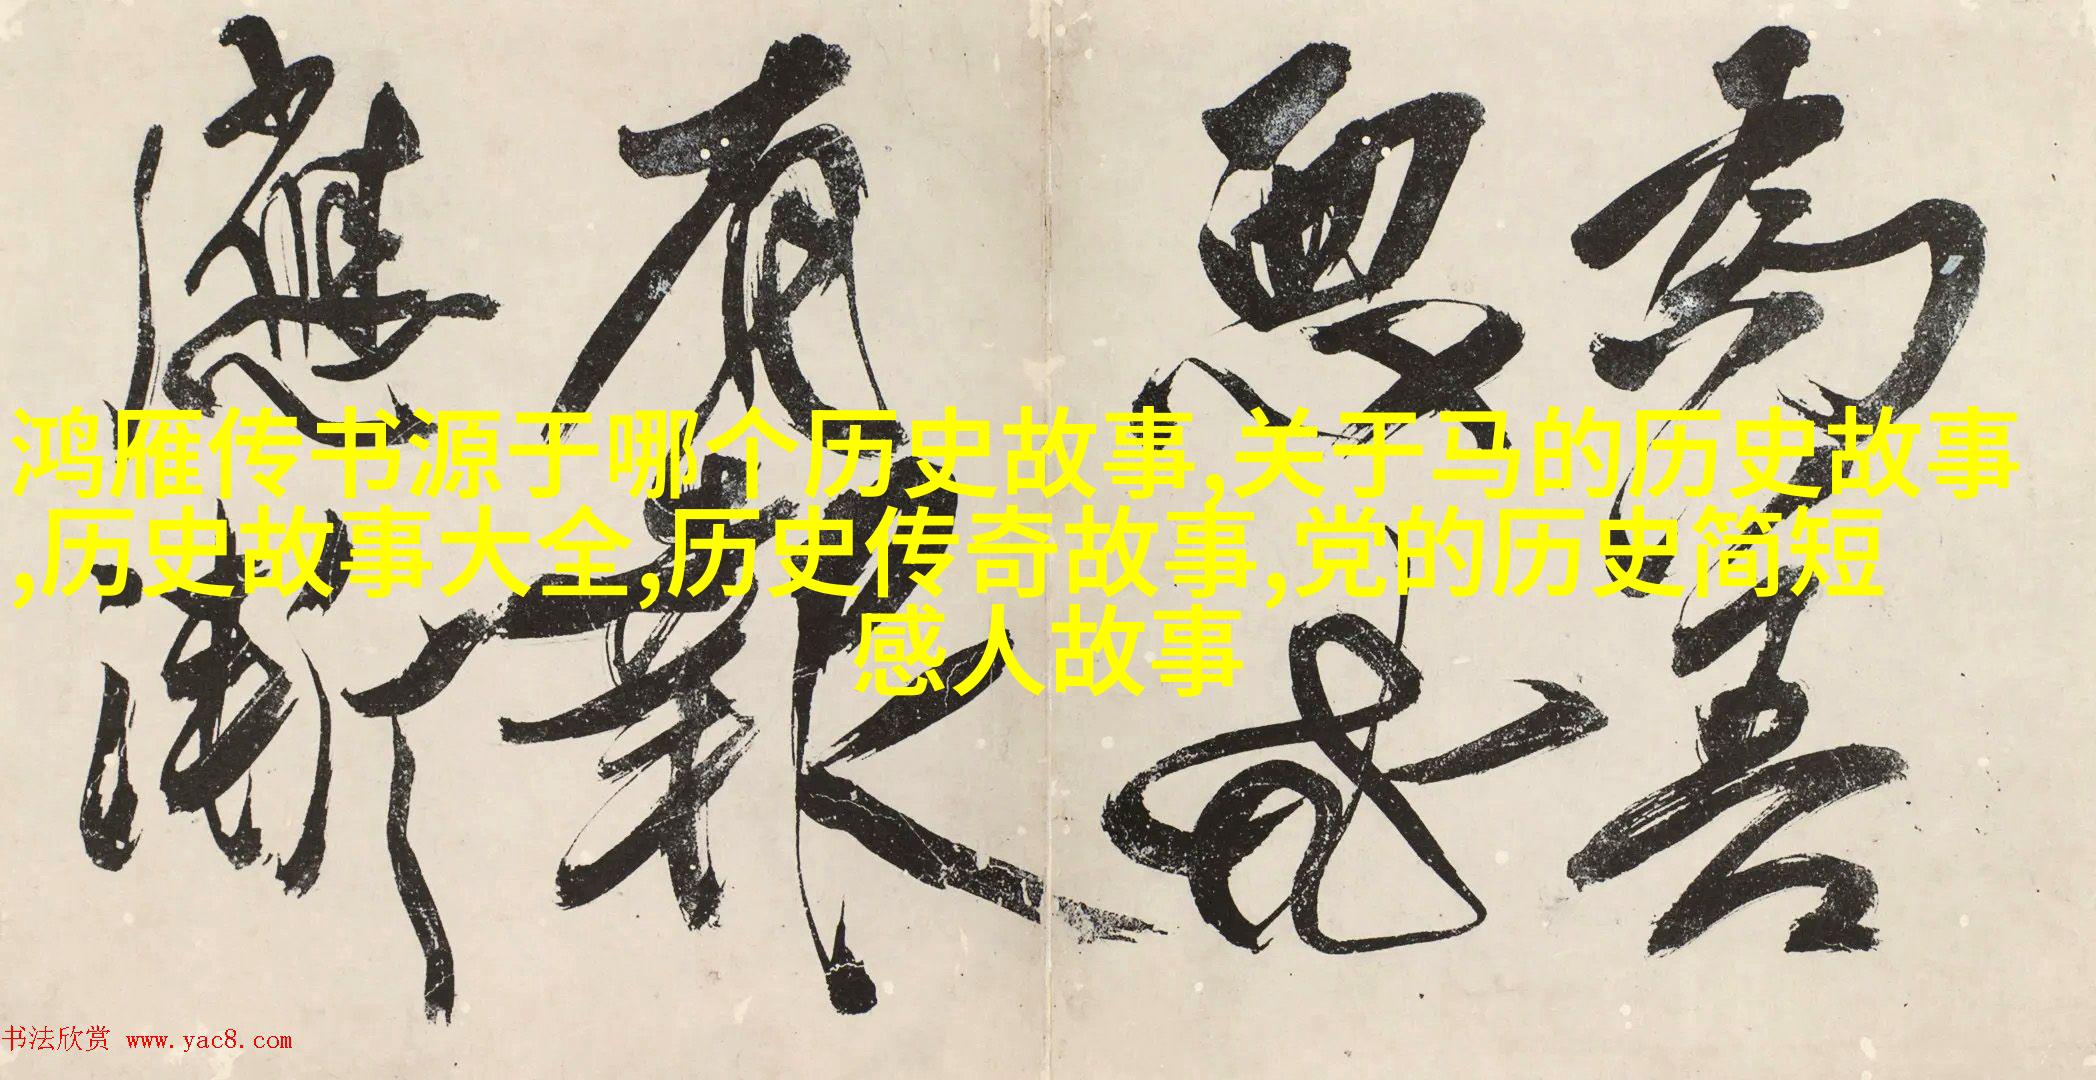 鸿雁传书源于哪个历史故事,关于马的历史故事
,历史故事大全,历史传奇故事,党的历史简短
感人故事
為善
惡
有報
應漸
书法欣赏 www.yac8.com